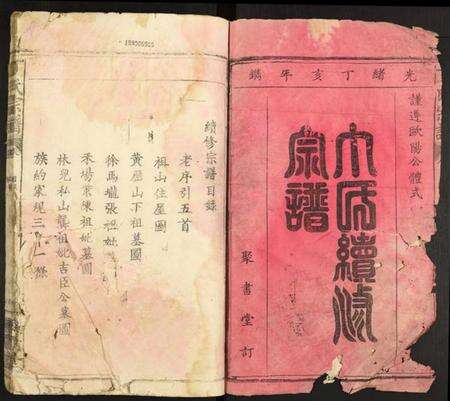 光緒丁亥年鐫
謹遵歐陽公體式
氏續修
宗譜
聚書堂訂
續修宗譜目錄
老序引五首
祖山住屋圖
黃歷山下祖墓圖
徐馬壠張祖妣
禾場東陳祖妣墓圖
林兒私山龔祖妣吉臣公墓圖
族約家規三十一條